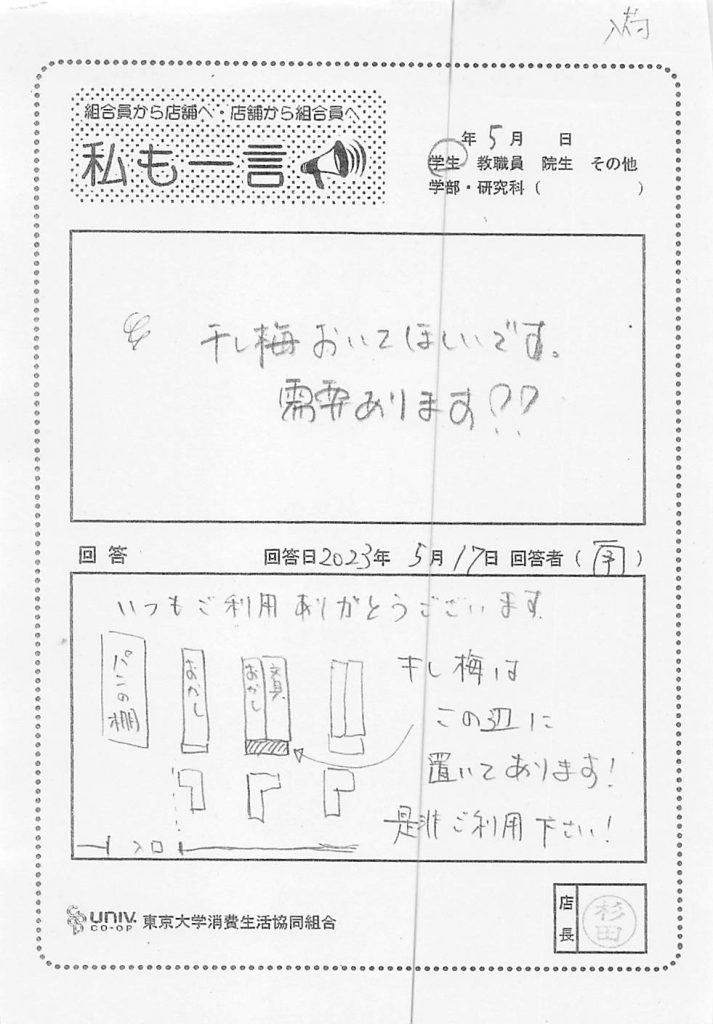 組合員から店舗へ・店舗から組合員へ
私も一言
年5月 日
学生 教職員 院生 その他
学部・研究科( )
干し梅おいてほしいです。
需要あります??
回答
回答日2023年 5月17日 回答者( )
いつもご利用ありがとうございます
パンの棚
おかし
おかし
文具
干し梅は
この辺に
置いてあります!
是非ご利用下さい!
入口
UNIV.
CO-OP
東京大学消費生活協同組合
店長
杉田